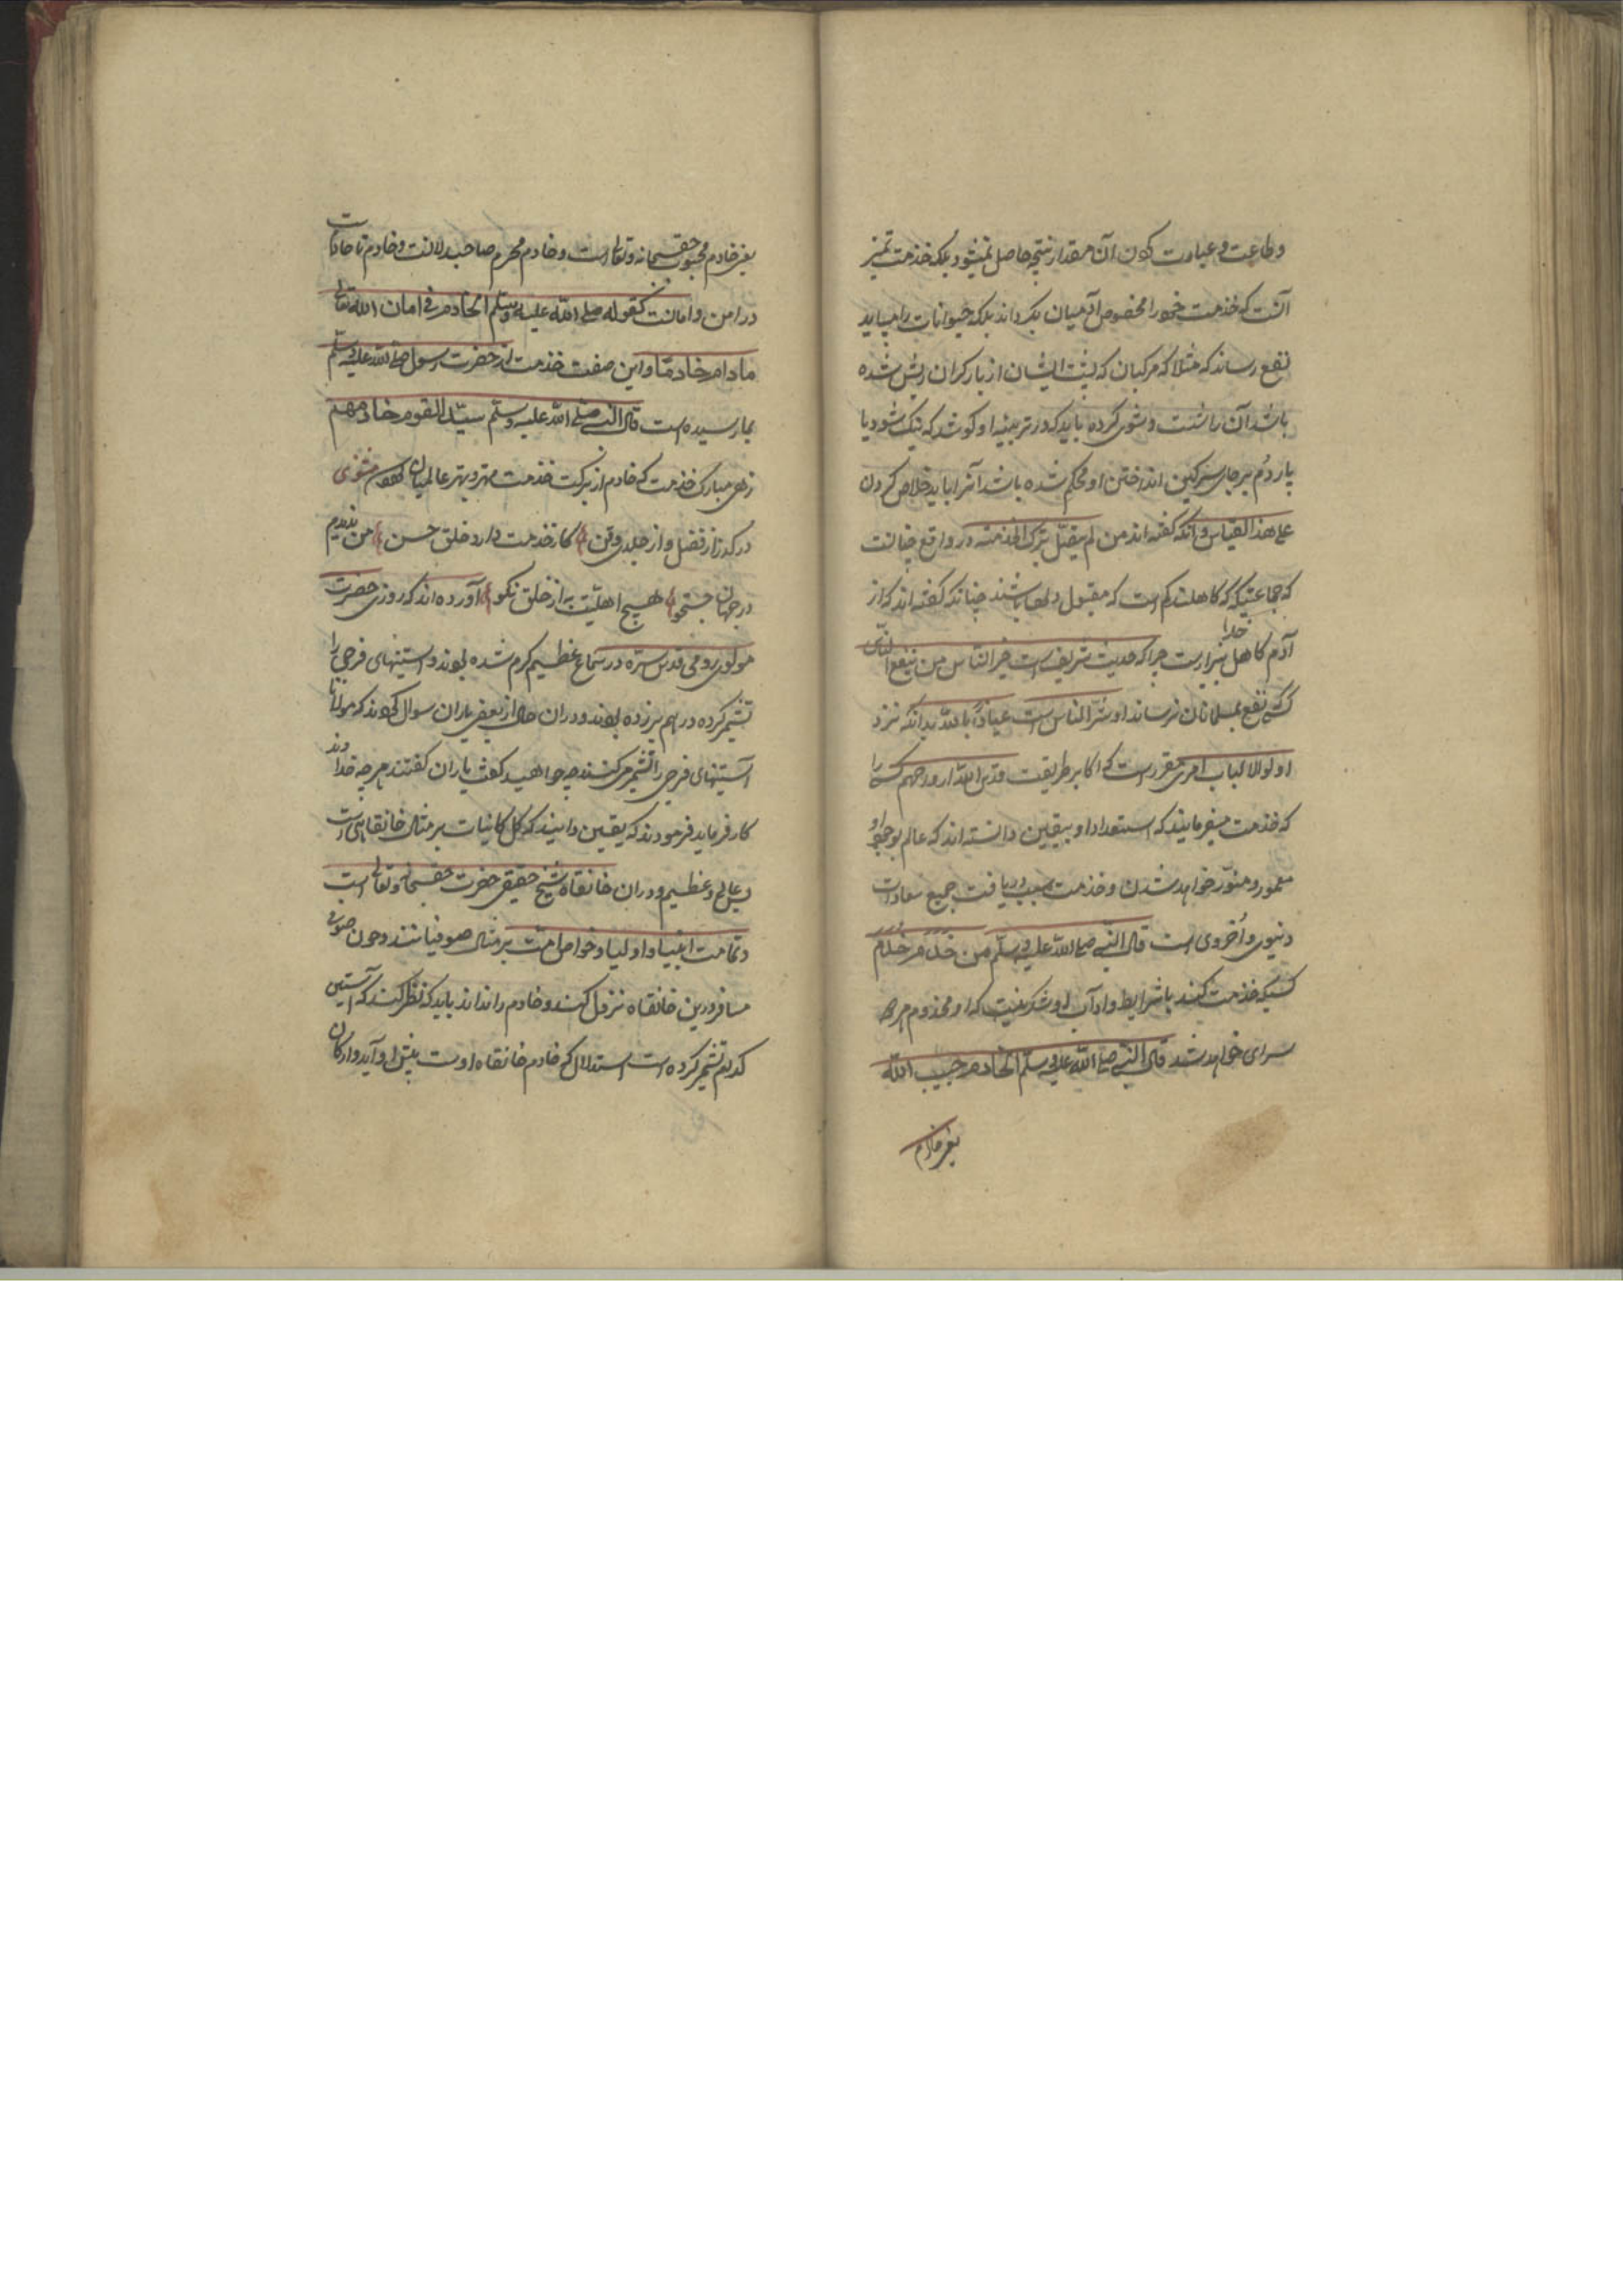 وطاعت و عبادت کردن آن مقدار نتیجه حاصل نمیشود بلکه خدمت تمیز
آنست که خدمت خود را مخصوص آدمیان نکرداند بلکه حیوانات را میباید
نفع رساند که مثلا که مرکبان که پشت ایشان از بار کران ریش شده
باشد آن را شست و شوی کرده باید که در تربیه او کوشد که نیک شود یا
پاردم بر جای سرکین انداختن او محکم شده باشد آنرا باید خلاص کردن
علی هذا القیاس و آنکه کفته اند من لم یقبل ترک الخدمته در واقع چنانست
که جماعتیکه که کاهلند کم است که مقبول دلها باشند چنانکه کفته اند که از
آدم کاهل خدا بیزارست چرا که حدیث شریف است خیر الناس من ینفع الناس
کسی نفع بمسلمانان نرساند او شر الناس است عیاذا بالله بدانکه نزد
اولو الالباب امری مقررست که اکابر طریقت قدس الله ارواحهم کسی را
که خدمت میفرمایند که استعداد او بیقین دانسته اند که عالم بوجود او
معمور و منور خواهد شدن و خدمت سبب دریافت جمیع سعادات
دنیوی و اخروی است قال النبی صلی الله علیه وسلم من خدم خدم
کسیکه خدمت کند با شرایط و آداب او شک نیست که او مخدوم هر دو
سرای خواهد شد قال النبی صلی الله علیه وسلم الخادم حبیب الله
یعنی خادم
یعنی خادم محبوب حق سبحانه وتعالی است و خادم محرم صاحبدلانست و خادم تا خادمست
در امن و امانست کقوله صلی الله علیه وسلم الخادم فی امان الله تعالی
مادام خادما و این صفت خدمت از حضرت رسول صلی الله علیه وسلم
بما رسیده است قال النبی صلی الله علیه وسلم سید القوم خادمهم
زهی مبارک خدمت که خادم از برکت خدمت مهتر و بهتر عالمیان مثنوی
در کذر از فضل و از جلدی و فن کار خدمت دارد و خلق حسن من ندیدم
در جهان جستجو هیچ اهلیت به از خلق نکو آورده اند که روزی حضرت
مولوی رومی قدس سره در سماع عظیم کرم شده بودند و آستینهای فرجی را
تشمیر کرده در هم بر زده بودند و در ان حال از بعض یاران سوال کردند که مولانا
آستینهای فرجی را تشمیر می کنند چه خواهید کفت یاران کفتند هر چه خداوند
کار فرماید فرمودند که یقین دانید که کل کاینات بر مثال خانقاهی است
بس عالی و عظیم و در ان خانقاه شیخ حقیقی حضرت حق سبحانه وتعالی است
و تمامت انبیا و اولیا و خواص امت بر مثال صوفیانند و چون صوفی
مسافر درین خانقاه نزول کند و خادم را نداند باید که نظر کند که آستین
کدام تشمیر کرده است استدلال که خادم خانقاه اوست پیش او آید و ارکان